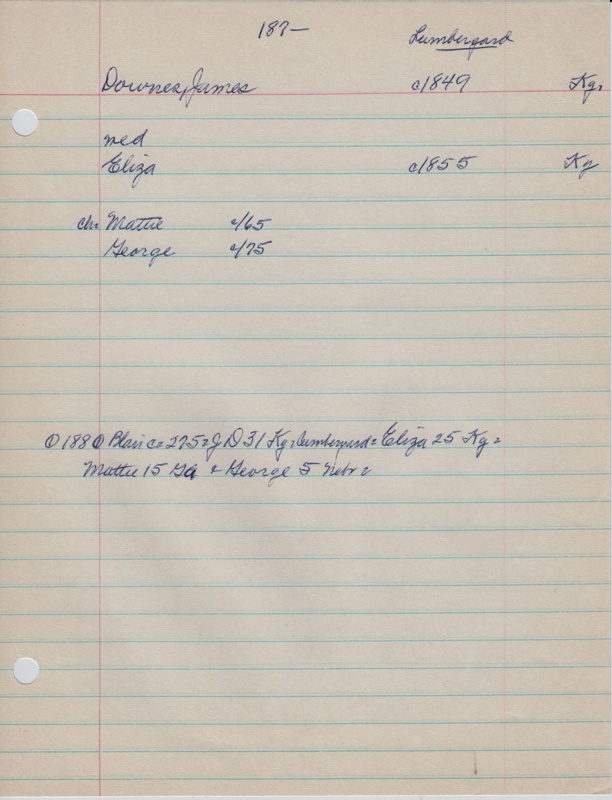 187—
Lumberyard
Downes, James c/1849 Ky.
med
Eliza c/1855 Ky
chn Mattie c/65
George c/75
① 1880 Blair c= 275= J D 31 Ky= Lumberyard= Eliza 25 Ky=
Mattie 15 Ga & George 5 Nebr=